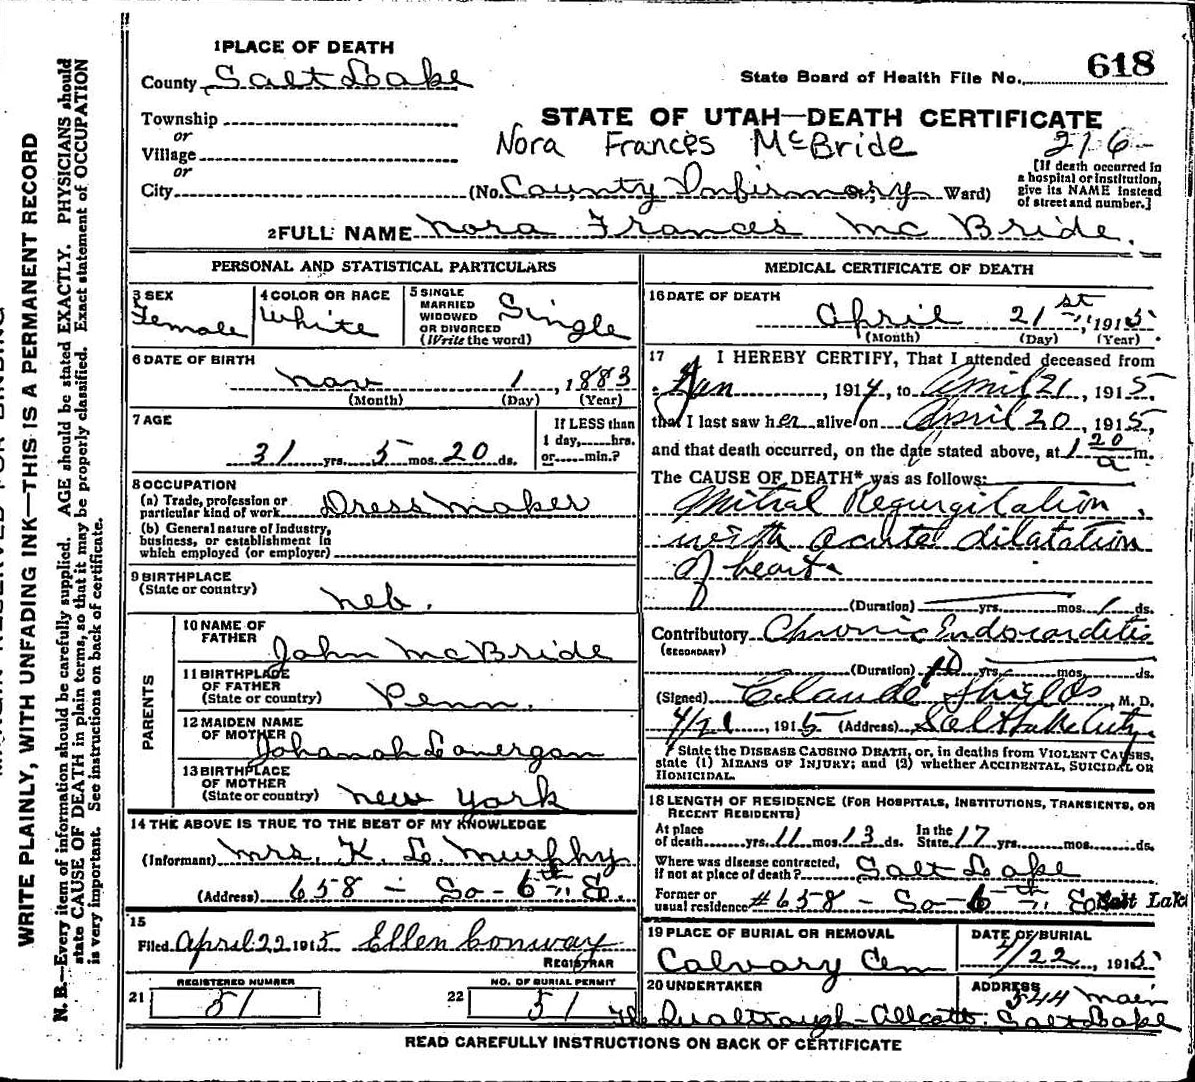 1 PLACE OF DEATH
County Salt Lake
State Board of Health File No. 618
Township
or
Village
or
City
STATE OF UTAH—DEATH CERTIFICATE
Nora Frances McBride
216
(No. County Infirmary Ward)
[If death occurred in
a hospital or institution,
give its NAME instead
of street and number.]
2 FULL NAME Nora Frances Mc Bride.
PERSONAL AND STATISTICAL PARTICULARS
3 SEX
Female
4 COLOR OR RACE
White
5 SINGLE
MARRIED
WIDOWED
OR DIVORCED
(Write the word)
Single
6 DATE OF BIRTH
Nov 1, 1883
(Month) (Day) (Year)
7 AGE
31 yrs. 5 mos. 20 ds.
If LESS than
1 day,.....hrs.
or.....min.?
8 OCCUPATION
(a) Trade, profession or
particular kind of work Dress maker
(b) General nature of industry,
business, or establishment in
which employed (or employer)
9 BIRTHPLACE
(State or country)
Neb.
PARENTS
10 NAME OF
FATHER
John McBride
11 BIRTHPLACE
OF FATHER
(State or country)
Penn.
12 MAIDEN NAME
OF MOTHER
Johanah
13 BIRTHPLACE
OF MOTHER
(State or country) New York
14 THE ABOVE IS TRUE TO THE BEST OF MY KNOWLEDGE
(Informant) Mrs. K. L. Murphy
(Address) 658 - So - 6th E.
15
Filed April 22 1915 Ellen Conway
REGISTRAR
21 REGISTERED NUMBER
51
22 NO. OF BURIAL PERMIT
51
MEDICAL CERTIFICATE OF DEATH
16 DATE OF DEATH
April 21st, 1915
(Month) (Day) (Year)
17 I HEREBY CERTIFY, That I attended deceased from
Jan, 1914, to April 21, 1915
that I last saw her alive on April 20, 1915,
and that death occurred, on the date stated above, at 1 20 a m.
The CAUSE OF DEATH* was as follows:
Mitral Regurgitation
with acute dilatation
of heart.
(Duration) yrs. mos. 1 ds.
Contributory Chronic Endocarditis
(SECONDARY)
(Duration) 10 yrs. mos. ds.
(Signed) Claude Shields, M. D.
4/21, 1915 (Address) Salt Lake City.
* State the DISEASE CAUSING DEATH, or, in deaths from VIOLENT CAUSES,
state (1) MEANS OF INJURY; and (2) whether ACCIDENTAL, SUICIDAL OR
HOMICIDAL.
18 LENGTH OF RESIDENCE (FOR HOSPITALS, INSTITUTIONS, TRANSIENTS, OR
RECENT RESIDENTS)
At place
of death yrs. 11 mos. 13 ds. In the
State 17 yrs. mos. ds.
Where was disease contracted,
if not at place of death? Salt Lake
Former or
usual residence #658 - So - 6th E Salt Lake
19 PLACE OF BURIAL OR REMOVAL
Calvary Cem
DATE OF BURIAL
4/22, 1915
20 UNDERTAKER
ADDRESS
544 Main
Salt Lake
READ CAREFULLY INSTRUCTIONS ON BACK OF CERTIFICATE
WRITE PLAINLY, WITH UNFADING INK—THIS IS A PERMANENT RECORD
N. B.—Every item of information should be carefully supplied. AGE should be stated EXACTLY. PHYSICIANS should
state CAUSE OF DEATH in plain terms, so that it may be properly classified. Exact statement of OCCUPATION
is very important. See instructions on back of certificate.